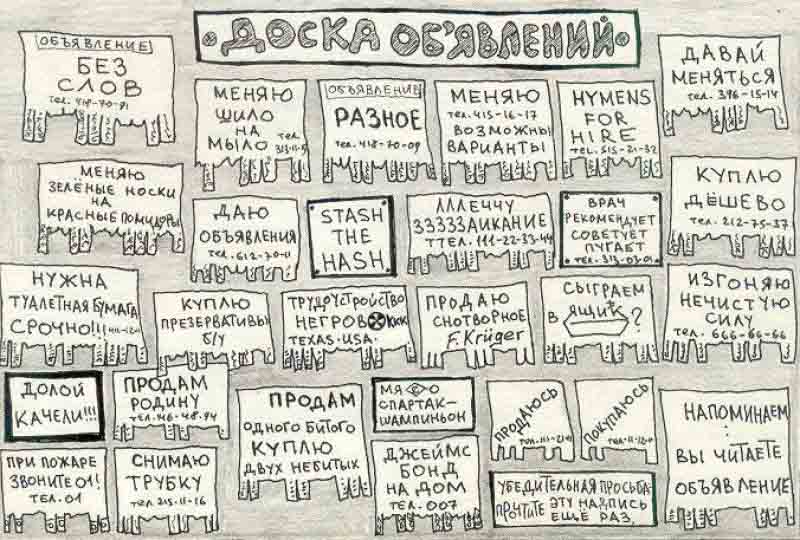 ДОСКА ОБ'ЯВЛЕНИЙ
ОБЪЯВЛЕНИЕ
БЕЗ
СЛОВ
ТЕЛ. 418-70-91
МЕНЯЮ
ШИЛО
НА
МЫЛО ТЕЛ.
313-11-5
ОБЪЯВЛЕНИЕ
РАЗНОЕ
ТЕЛ. 418-70-09
МЕНЯЮ
ТЕЛ. 415-16-17
ВОЗМОЖНЫ
ВАРИАНТЫ
HYMENS
FOR
HIRE
TEL. 515-21-32
ДАВАЙ
МЕНЯТЬСЯ
ТЕЛ. 396-15-14
МЕНЯЮ
ЗЕЛЁНЫЕ НОСКИ
НА
КРАСНЫЕ ПОМИДОРЫ
ДАЮ
ОБЪЯВЛЕНИЯ
ТЕЛ. 612-70-11
STASH
THE
HASH
ЛЛЛЕЧЧУ
ЗЗЗЗЗАИКАНИЕ
ТТЕЛ. 111-22-33-44
ВРАЧ
РЕКОМЕНДУЕТ
СОВЕТУЕТ
ПУГАЕТ
ТЕЛ. 313-03-01
КУПЛЮ
ДЁШЕВО
ТЕЛ. 212-75-37
НУЖНА
ТУАЛЕТНАЯ БУМАГА
СРОЧНО!!!
КУПЛЮ
ПРЕЗЕРВАТИВЫ
Б/У
ТРУДРУСТРОЙСТВО
НЕГРОВ KKK
TEXAS. USA.
ПРОДАЮ
СНОТВОРНОЕ
F. Krüger
СЫГРАЕМ
В ЯЩИК?
ИЗГОНЯЮ
НЕЧИСТУЮ
СИЛУ
ТЕЛ. 666-66-66
ДОЛОЙ
КАЧЕЛИ!!!
ПРОДАМ
РОДИНУ
ТЕЛ. 146-48-94
ПРОДАМ
ОДНОГО БИТОГО
КУПЛЮ
ДВУХ НЕБИТЫХ
МЯСО
СПАРТАК-
ШАМПИНЬОН
ПРОДАЮСЬ
ПОКУПАЮСЬ
НАПОМИНАЕМ
:
ВЫ ЧИТАЕТЕ
ОБЪЯВЛЕНИЕ
ПРИ ПОЖАРЕ
ЗВОНИТЕ 01!
ТЕЛ. 01
СНИМАЮ
ТРУБКУ
ТЕЛ. 215-11-16
ДЖЕЙМС
БОНД
НА ДОМ
ТЕЛ. 007
УБЕДИТЕЛЬНАЯ ПРОСЬБА:
ПРОЧТИТЕ ЭТУ НАДПИСЬ
ЕЩЁ РАЗ.